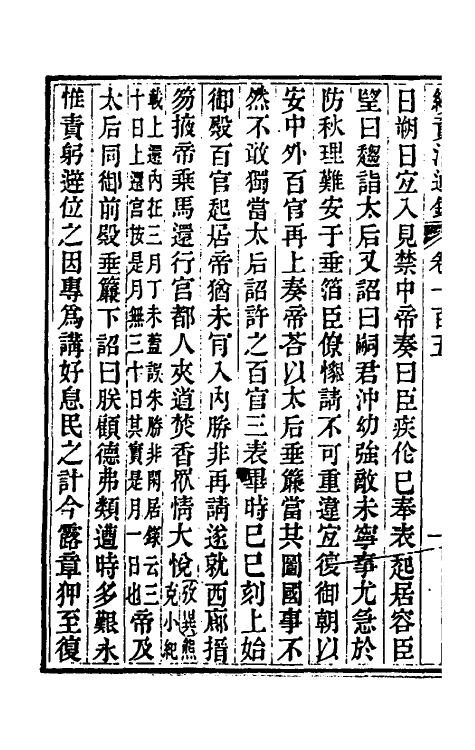 續資治通鑑 卷一百五 一
日朔日宜入見禁中帝奏曰臣疾倫已奉表起居容臣
朢日趨詣太后又詔曰嗣君沖幼強敵未寧事尤急於
防秋理難安于垂箔臣僚懷請不可重違宜復御朝以
安中外百官再上奏帝荅以太后垂簾當其圖國事不
然不敢獨當太后詔許之百官三表畢時巳巳刻上始
御殿百官起居帝猶未肎入內勝非再請遂就西廊搢
笏掖帝乘馬還行宮都人夾道焚香欲情大悅攷異熊克小紀
載上還內在三月丁未蓋誤朱勝非閑居錄云三
十日上還宮按是月無三十日其實是月一日也帝及
太后同御前殿垂簾下詔曰朕顧德弗類遭時多艱永
惟責躬避位之因專爲講好息民之計今露章狎至復